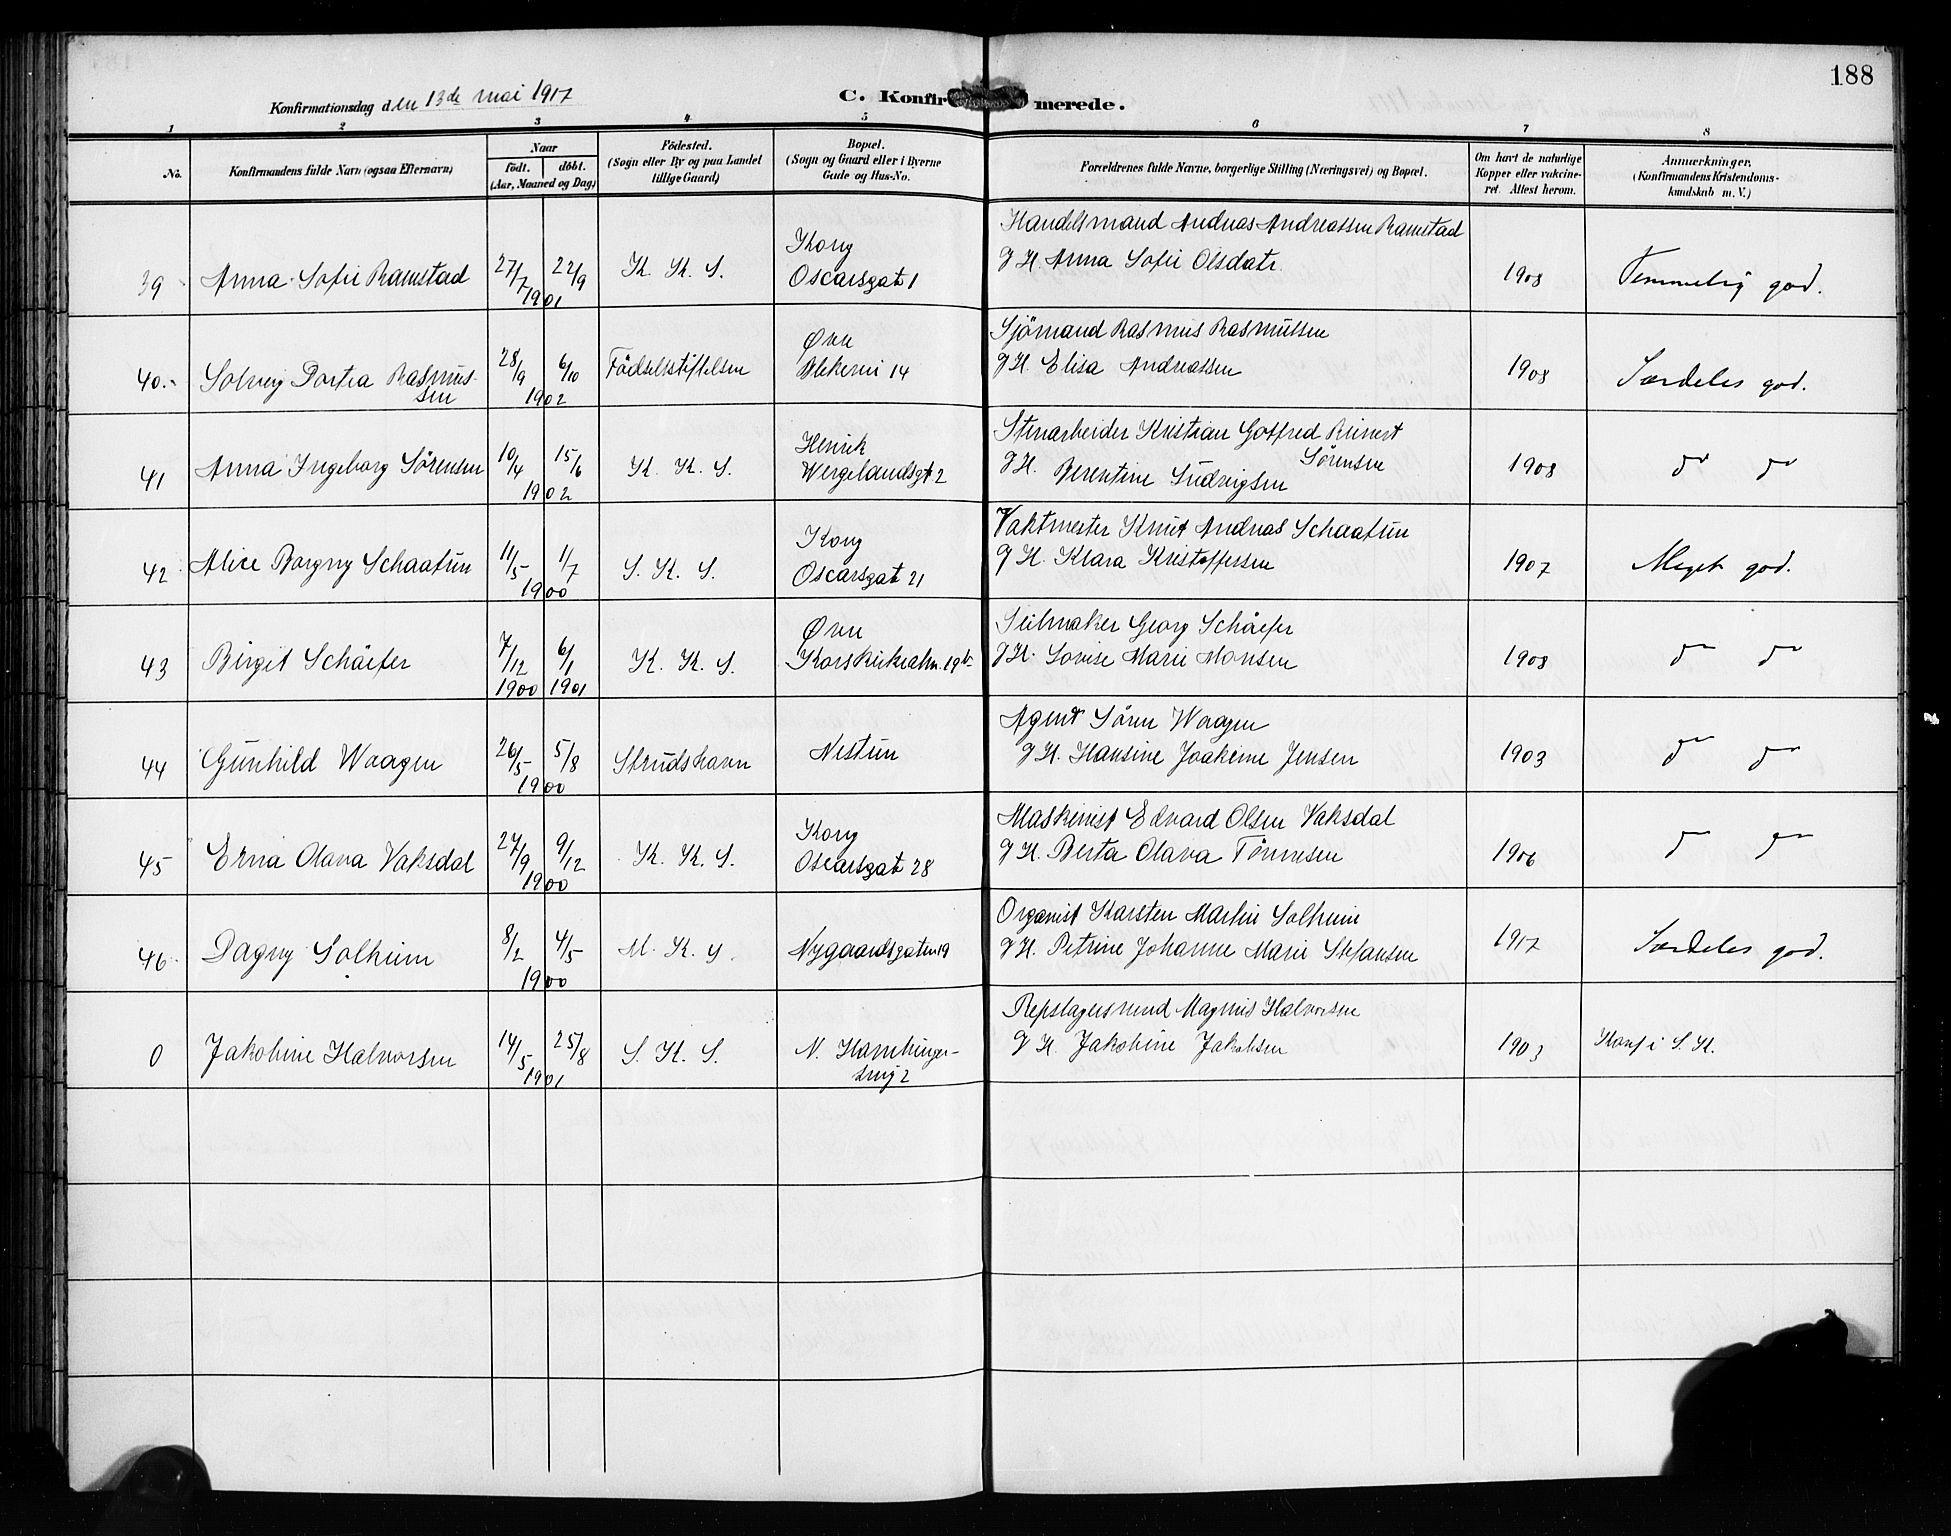 188
Konfirmationsdag den 13de mai 1917
C. Konfirmerede.
1 2 3 4 5 6 7 8
No.
Konfirmandens fulde Navn (ogsaa Efternavn)
Naar
født. døbt.
(Aar, Maaned og Dag)
Födested.
(Sogn eller By og paa Landet
tillige Gaard)
Bopæl.
(Sogn og Gaard eller i Byerne
Gade og Hus-No.
Forældrenes fulde Navne, borgerlige Stilling (Næringsvei) og Bopæl.
Om havt de naturlige
Kopper eller vakcine-
ret. Attest herom.
Anmærkninger.
(Konfirmandens Kristendoms-
kundskab m. V.)
39 Anna Sofie Ramstad 27/7 22/9 1901 K. K. S. Kong
Oscarsgat 1
Handelsmand Andreas Andreassen Ramstad
G H. Anna Sofie Olsdatr.
1908 Temmelig god.
40. Solveig Portia Rasmus-
sen 28/9 6/10 1902 Födselsstiftelsen Øvre
Blekevei 14
Sjömand Rasmus Rasmussen
G H. Elisa Andreassen
1908 Særdeles god.
41 Anna Ingeborg Sörensen 10/4 15/6 1902 K. K. S. Henrik
Wergelandsgt 2
Stenarbeider Kristian Gotfred Reinert
Sörensen
G H. Berentine Ludvigsen
1908 do do
42 Alice Borgny Schaatun 11/5 1/7 1900 S. K. S. Kong
Oscarsgat 21
Vaktmester Knut Andreas Schaatun
G H. Klara Kristoffersen
1907 Meget god.
43 Birgit Schäefer 7/12 1900 6/1 1901 K. K. S. Øvre
Korskirkealm. 19b
Seilmaker Georg Schäefer
G H. Lovise Marie Monsen
1908 do do
44 Gunhild Waagen 26/5 5/8 1900 Strudshavn Nestun
Agent Sören Waagen
G H. Hansine Joakime Jensen
1903 do do
45 Erna Olava Vaksdal 27/9 9/12 1900 K. K. S. Kong
Oscarsgat 28
Maskinist Edvard Olsen Vaksdal
G H. Berta Olava Tönnesen
1906 do do
46 Dagny Solheim 8/2 4/5 1900 M. K. S. Nygaardsgaten 19
Organist Karsten Martin Solheim
G H. Petrine Johanne Marie Stefansen
1917 Særdeles god.
0 Jakobine Halvorsen 14/5 25/8 1901 S. K. S.
Repslagersvend Magnus Halvorsen
G H. Jakobine Jakobsen
1903 Konf i S. K.